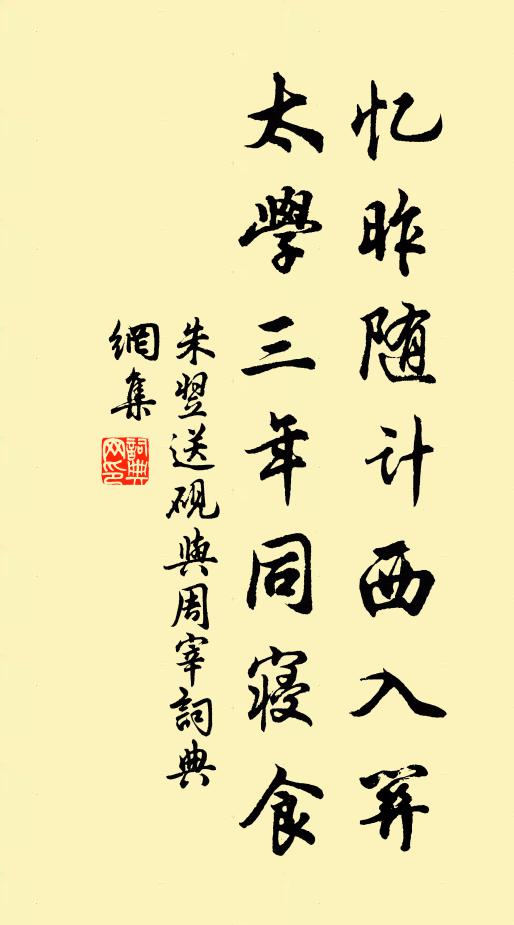 忆昨随计西入关
太學三年同寝食
朱翌送砚與周宰詞典
網集
詞典网印